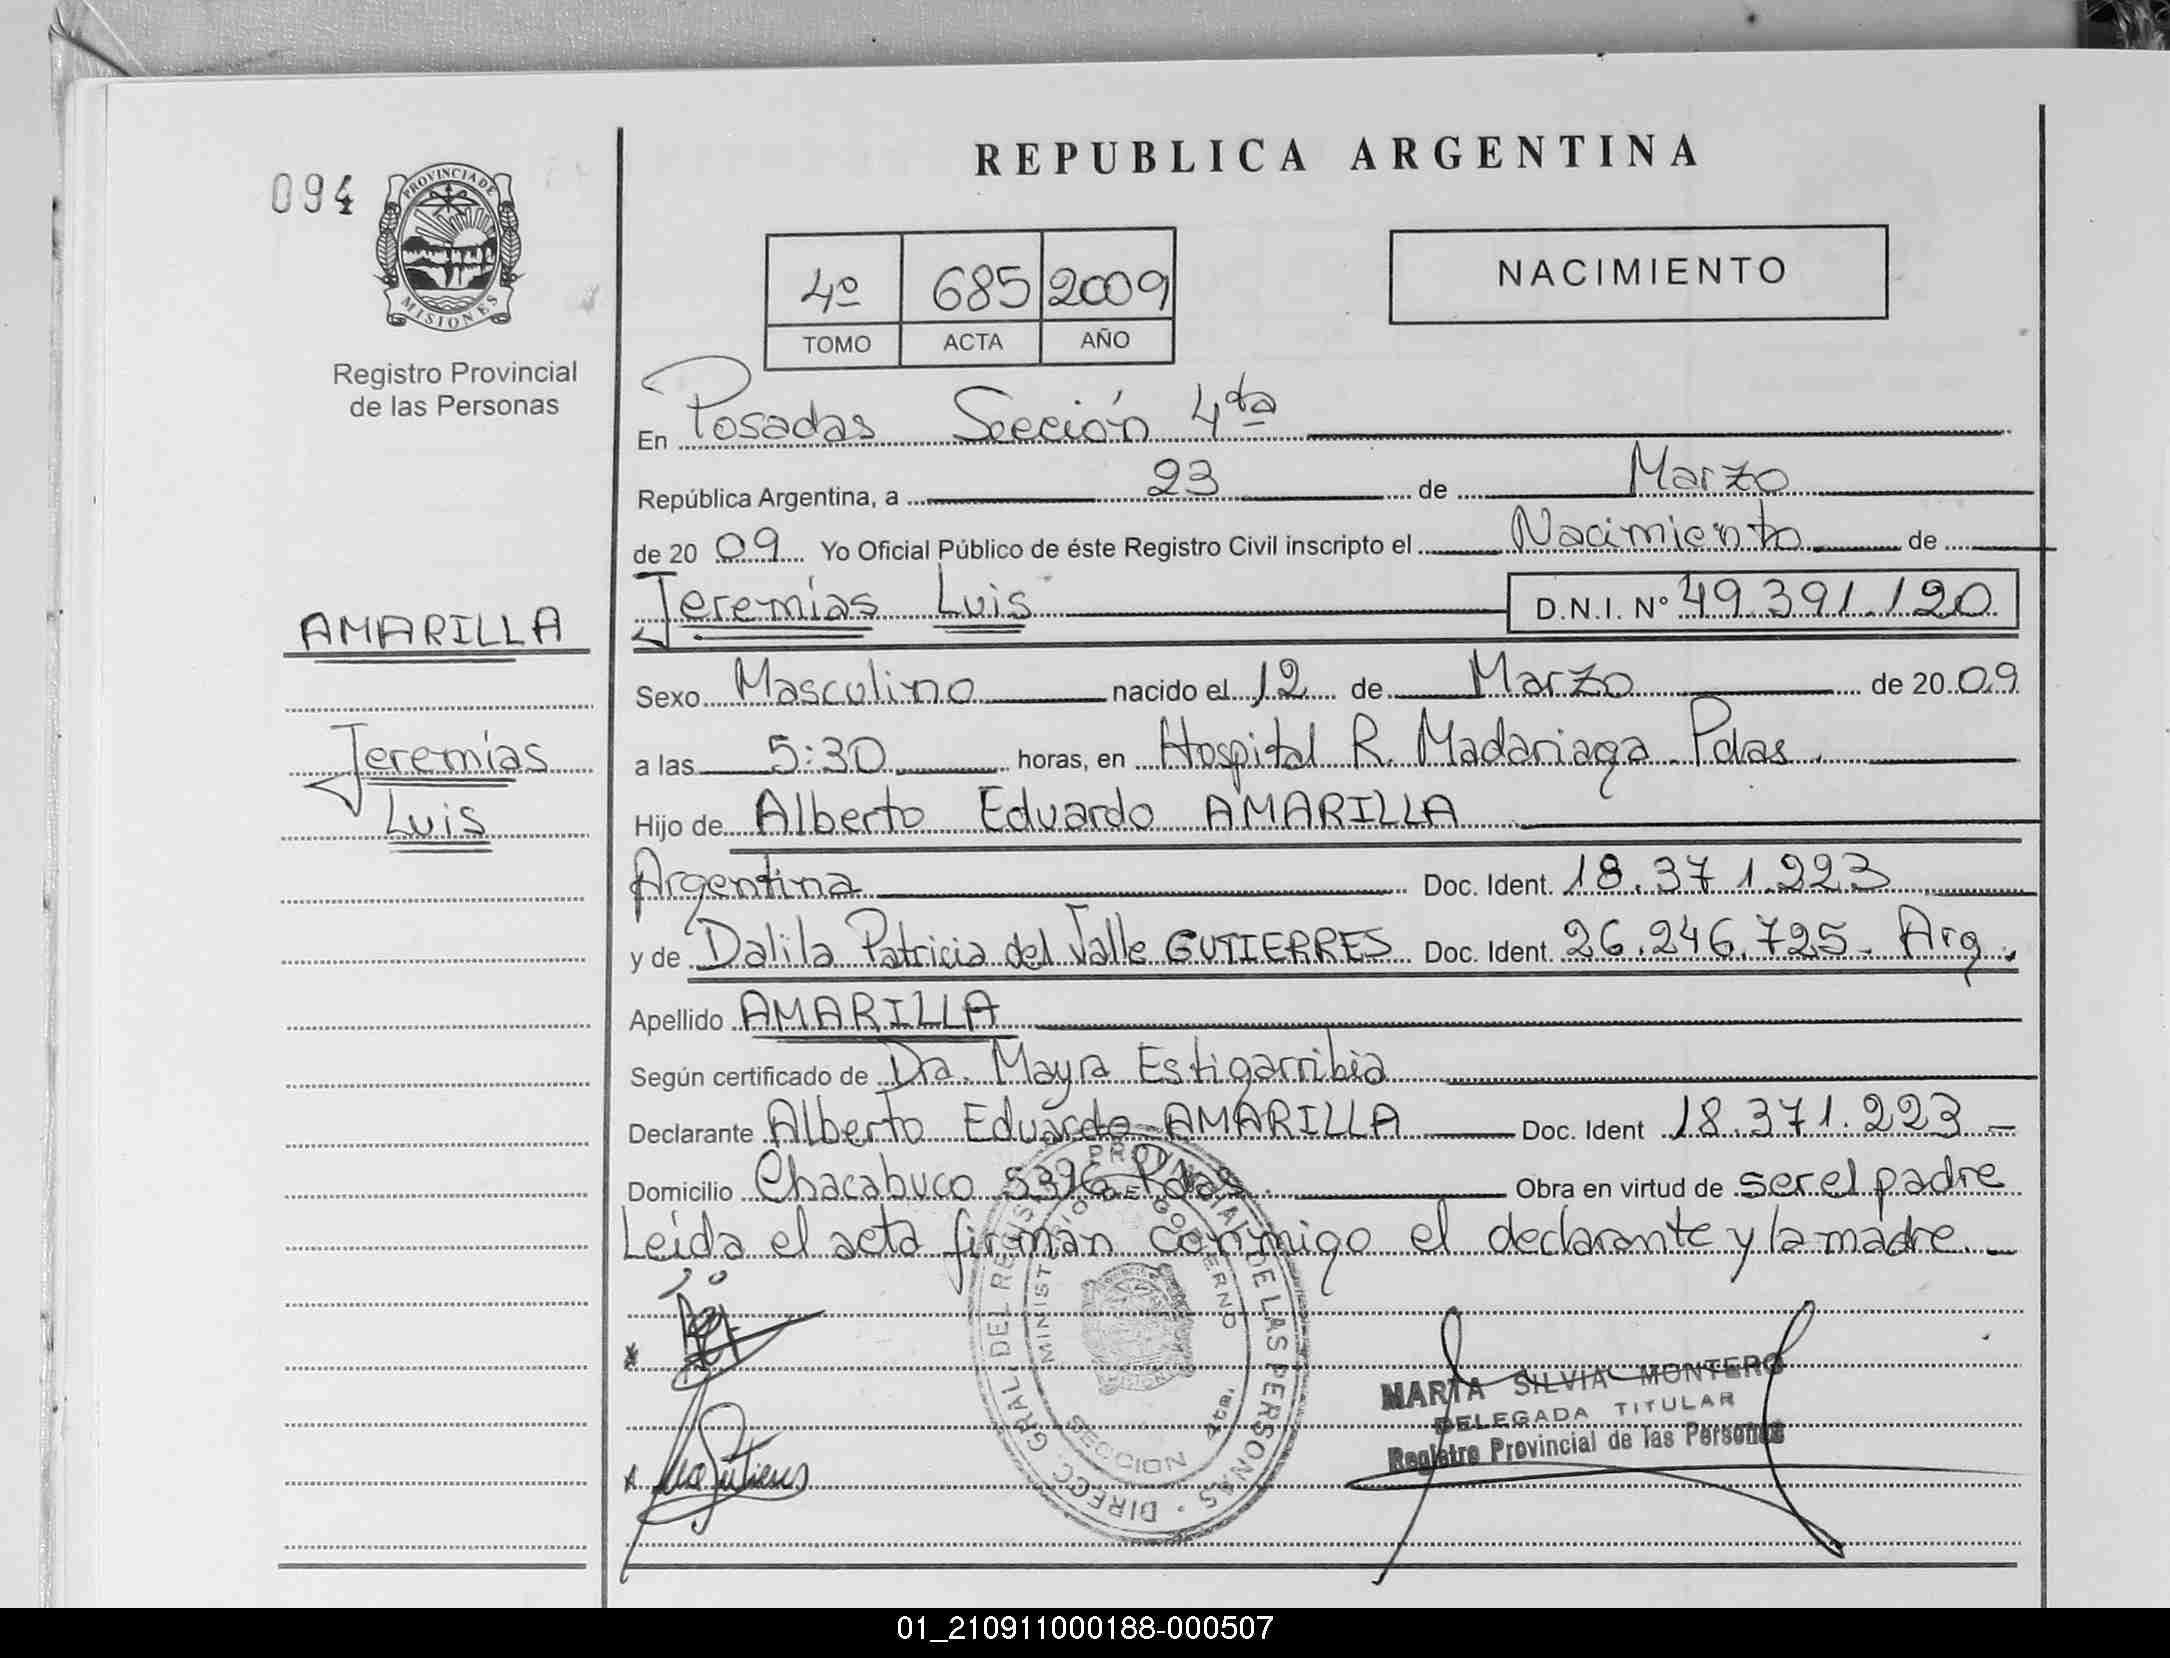 094
PROVINCIA DE
MISIONES
Registro Provincial
de las Personas
REPUBLICA ARGENTINA
4º 685 2009
TOMO ACTA AÑO
NACIMIENTO
En Posadas Sección 4ta
República Argentina, a 23 de Marzo
de 20 09 Yo Oficial Público de éste Registro Civil inscripto el Nacimiento de
Jeremías Luis D.N.I. Nº 49.391.120
AMARILLA
Jeremías
Luis
Sexo Masculino nacido el 12 de Marzo de 20 09
a las 5:30 horas, en Hospital R. Madariaga Pdas.
Hijo de Alberto Eduardo AMARILLA
Argentina Doc. Ident. 18.371.223
y de Dalila Patricia del Valle GUTIERRES Doc. Ident. 26.246.725- Arg.
Apellido AMARILLA
Según certificado de Dra. Mayra Estigarribia
Declarante Alberto Eduardo AMARILLA Doc. Ident 18.371.223-
Domicilio Chacabuco 5396 Pdas. Obra en virtud de ser el padre
Leída el acta firman conmigo el declarante y la madre.-
DIRECC. GRAL. DEL REGIST. PROVINCIAL DE LAS PERSONAS
MINISTERIO DE GOBIERNO
SECCION 4ta.
MARTA SILVIA MONTERO
DELEGADA TITULAR
Registro Provincial de las Personas
01_210911000188-000507